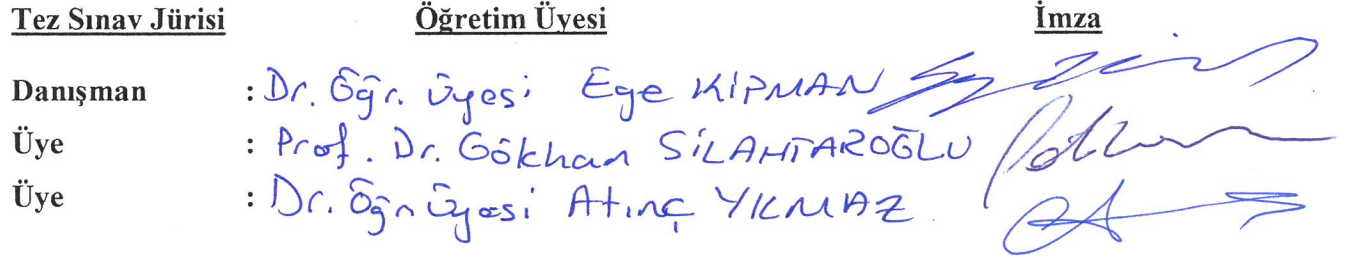 Tez Sınav Jürisi Öğretim Üyesi İmza
Danışman : Dr. Öğr. Üyesi Ege KİPMAN
Üye : Prof. Dr. Gökhan SİLAHTAROĞLU
Üye : Dr. Öğr Üyesi Atınç YILMAZ